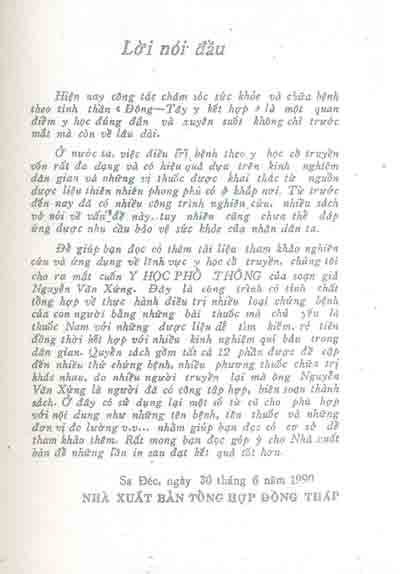 Lời nói đầu
Hiện nay công tác chăm sóc sức khỏe và chữa bệnh
theo tinh thần « Đông—Tây y kết hợp » là một quan
điểm y học đúng đắn và xuyên suốt không chỉ trước
mắt mà còn về lâu dài.
Ở nước ta, việc điều trị bệnh theo y học cổ truyền
vốn rất đa dạng và có hiệu quả dựa trên kinh nghiệm
dân gian và những vị thuốc được khai thác từ nguồn
dược liệu thiên nhiên phong phú có ở khắp nơi. Từ trước
đến nay đã có nhiều công trình nghiên cứu, nhiều sách
vở nói về vấn đề này.. tuy nhiên cũng chưa thể đáp
ứng được nhu cầu bảo vệ sức khỏe của nhân dân ta.
Để giúp bạn đọc có thêm tài liệu tham khảo nghiên
cứu và ứng dụng về lĩnh vực y học cổ truyền, chúng tôi
cho ra mắt cuốn Y HỌC PHỔ THÔNG của soạn giả
Nguyễn Văn Xứng. Đây là công trình có tính chất
tổng hợp về thực hành điều trị nhiều loại chứng bệnh
của con người bằng những bài thuốc mà chủ yếu là
thuốc Nam với những dược liệu dễ tìm kiếm, rẻ tiền
đồng thời kết hợp với nhiều kinh nghiệm quí báu trong
dân gian. Quyển sách gồm tất cả 12 phần được đề cập
đến nhiều thứ chứng bệnh, nhiều phương thuốc chữa trị
khác nhau, do nhiều người truyền lại mà ông Nguyễn
Văn Xứng là người đã có công tập hợp, biên soạn thành
sách. Ở đây có sử dụng lại một số từ cũ cho phù hợp
với nội dung như những tên bệnh, tên thuốc và những
đơn vị đo lường v.v... nhằm giúp bạn đọc có cơ sở để
tham khảo thêm. Rất mong bạn đọc góp ý cho Nhà xuất
bản để những lần in sau đạt kết quả tốt hơn.
Sa Đéc, ngày 30 tháng 6 năm 1990
NHÀ XUẤT BẢN TỔNG HỢP ĐỒNG THÁP